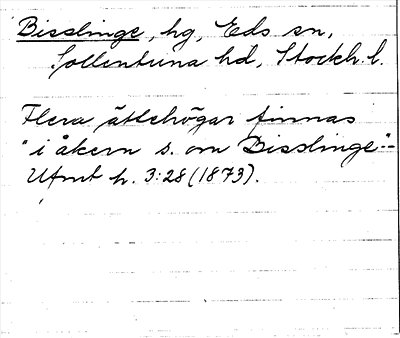 Bisslinge, hg, Eds sn,
Sollentuna hd, Stockh. l.
Flera ättehögar finnas
"i åkern s. om Bisslinge" -
Utmt h. 3:28 (1873).